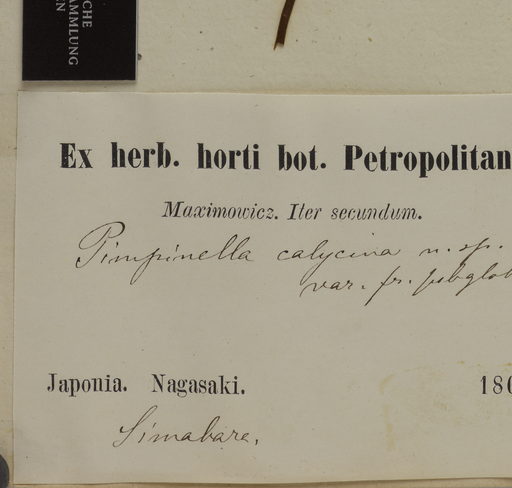 CHE
AMMLUNG
EN
Ex herb. horti bot. Petropolitan
Maximowicz. Iter secundum.
Pimpinella calycina n. sp.
var. fr. subglob
Japonia. Nagasaki. 186
Simabara.